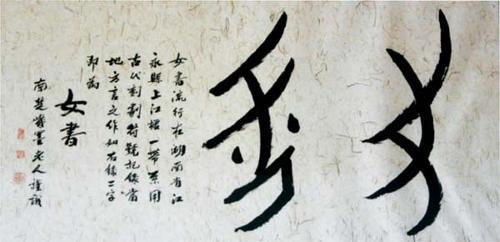 女書流行在湖南省江
永縣上江墟一帶系用
古代刻劃符號記錄當
地方言之作如右錄二字
即為
女書
南楚墨老人謹識